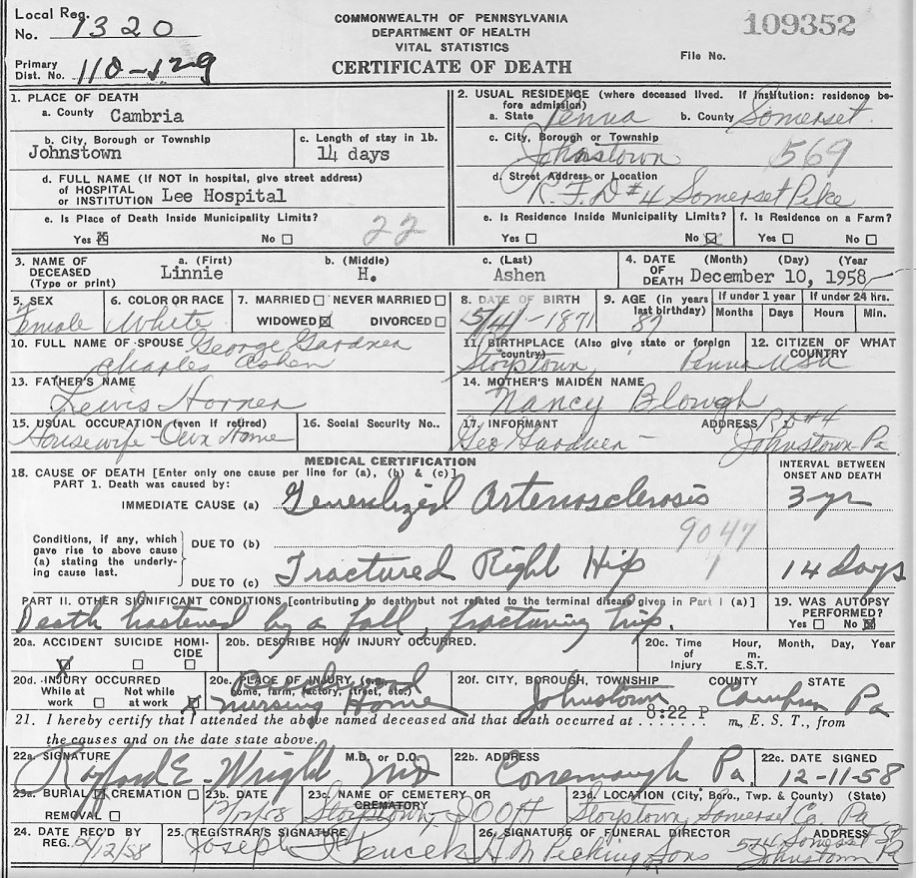 Local Reg. No. 1320
COMMONWEALTH OF PENNSYLVANIA
DEPARTMENT OF HEALTH
VITAL STATISTICS
CERTIFICATE OF DEATH
109352
File No.
Primary Dist. No. 110-129
1. PLACE OF DEATH
a. County Cambria
b. City, Borough or Township
Johnstown
c. Length of stay in 1b.
14 days
d. FULL NAME (If NOT in hospital, give street address)
of HOSPITAL
or INSTITUTION Lee Hospital
e. Is Place of Death Inside Municipality Limits?
Yes ☒ No ☐ 22
2. USUAL RESIDENCE (where deceased lived. If Institution: residence be-
fore admission)
a. State Penna b. County Somerset
c. City, Borough or Township
Johnstown 569
d. Street Address or Location
R.F.D #4 Somerset Pike
e. Is Residence Inside Municipality Limits?
Yes ☐ No ☒
f. Is Residence on a Farm?
Yes ☐ No ☐
3. NAME OF DECEASED
(Type or print)
a. (First) b. (Middle) c. (Last)
Linnie H. Ashen
4. DATE OF DEATH (Month) (Day) (Year
December 10, 1958
5. SEX
Female
6. COLOR OR RACE
White
7. MARRIED ☐ NEVER MARRIED ☐
WIDOWED ☒ DIVORCED ☐
8. DATE OF BIRTH
5/4/-1871
9. AGE (In years last birthday)
87
If under 1 year
Months Days
If under 24 hrs.
Hours Min.
10. FULL NAME OF SPOUSE George Gardner
Charles Ashen
11. BIRTHPLACE (Also give state or foreign country)
Stoystown, Penna
12. CITIZEN OF WHAT COUNTRY
USA
13. FATHER'S NAME
Lewis Horner
14. MOTHER'S MAIDEN NAME
Nancy Blough
15. USUAL OCCUPATION (even if retired)
Housewife-Own Home
16. Social Security No..
17. INFORMANT ADDRESS
Geo Gardner - RD #4
Johnstown-Pa
MEDICAL CERTIFICATION
18. CAUSE OF DEATH [Enter only one cause per line for (a), (b) & (c)]
PART 1. Death was caused by:
INTERVAL BETWEEN
ONSET AND DEATH
IMMEDIATE CAUSE (a) Generalized Arteriosclerosis 3 yr
Conditions, if any, which
gave rise to above cause
(a) stating the underly-
ing cause last.
DUE TO (b) 9047
DUE TO (c) Fractured Right Hip 1 14 days
PART II. OTHER SIGNIFICANT CONDITIONS [contributing to death but not related to the terminal disease given in Part I (a)]
Death hastened by a fall, fracturing hip.
19. WAS AUTOPSY PERFORMED?
Yes ☐ No ☒
20a. ACCIDENT SUICIDE HOMI-
CIDE
☒ ☐ ☐
20b. DESCRIBE HOW INJURY OCCURRED.
20c. Time of Injury Hour, Month, Day, Year
m.
E.S.T.
20d. INJURY OCCURRED
While at work ☐ Not while at work ☒
20e. PLACE OF INJURY (e.g., home, farm, factory, street, etc.)
Nursing Home
20f. CITY, BOROUGH, TOWNSHIP COUNTY STATE
Johnstown Cambria Pa
21. I hereby certify that I attended the above named deceased and that death occurred at 8:22 P m., E. S. T., from
the causes and on the date state above.
22a. SIGNATURE M.D. or D.O.
Rayford E. Wright MD
22b. ADDRESS
Conemaugh Pa.
22c. DATE SIGNED
12-11-58
23a. BURIAL ☒ CREMATION ☐
REMOVAL ☐
23b. DATE
12/12/58
23c. NAME OF CEMETERY OR CREMATORY
Stoystown, IOOF
23d. LOCATION (City, Boro., Twp. & County) (State)
Stoystown, Somerset Co. Pa
24. DATE REC'D BY REG.
12/12/58
25. REGISTRAR'S SIGNATURE
Joseph
26. SIGNATURE OF FUNERAL DIRECTOR ADDRESS
H M Picking Sons 574 Somerset St
Johnstown Pa